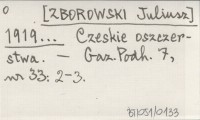 0
[ZBOROWSKI Juliusz]
1919... Czeskie oszczer-
stwa. — Gaz. Podh. 7,
nr 33: 2-3.
BJ/051/0133